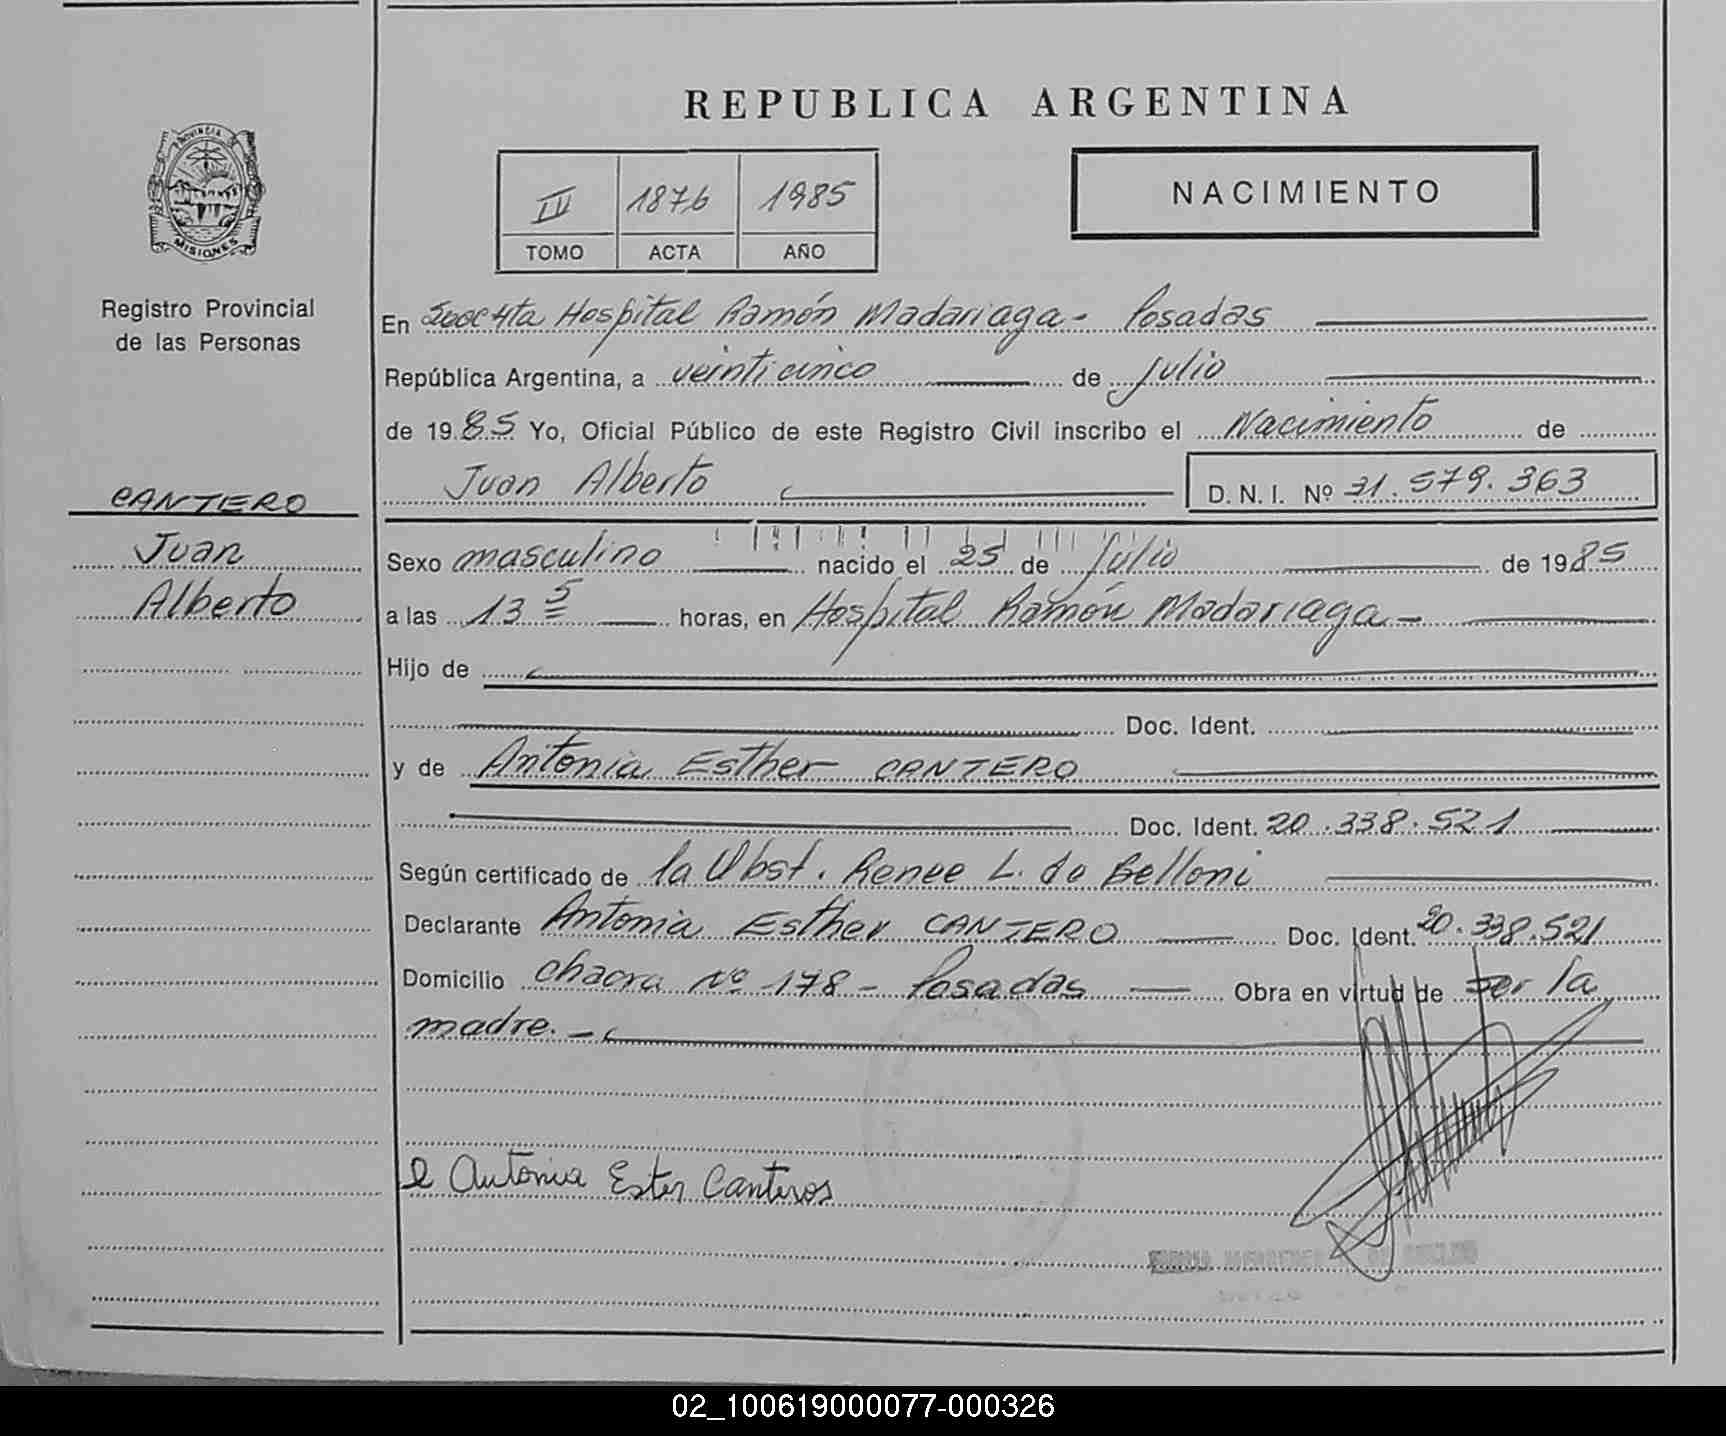 REPUBLICA ARGENTINA
PROVINCIA
MISIONES
Registro Provincial
de las Personas
III 1876 1985
TOMO ACTA AÑO
NACIMIENTO
En Hospital Ramón Madariaga - Posadas
República Argentina, a veinticinco de julio
de 1985 Yo, Oficial Público de este Registro Civil inscribo el Nacimiento de
Juan Alberto D. N. I. Nº 31.579.363
CANTERO
Juan
Alberto
Sexo masculino nacido el 25 de julio de 1985
a las 13 5 horas, en Hospital Ramón Madariaga -
Hijo de
Doc. Ident.
y de Antonia Esther CANTERO
Doc. Ident. 20.338.521
Según certificado de la Obst. Renee L. de Belloni
Declarante Antonia Esther CANTERO Doc. Ident. 20.338.521
Domicilio chacra Nº 178 - Posadas Obra en virtud de ser la
madre. -
Antonia Ester Canteros
02_100619000077-000326